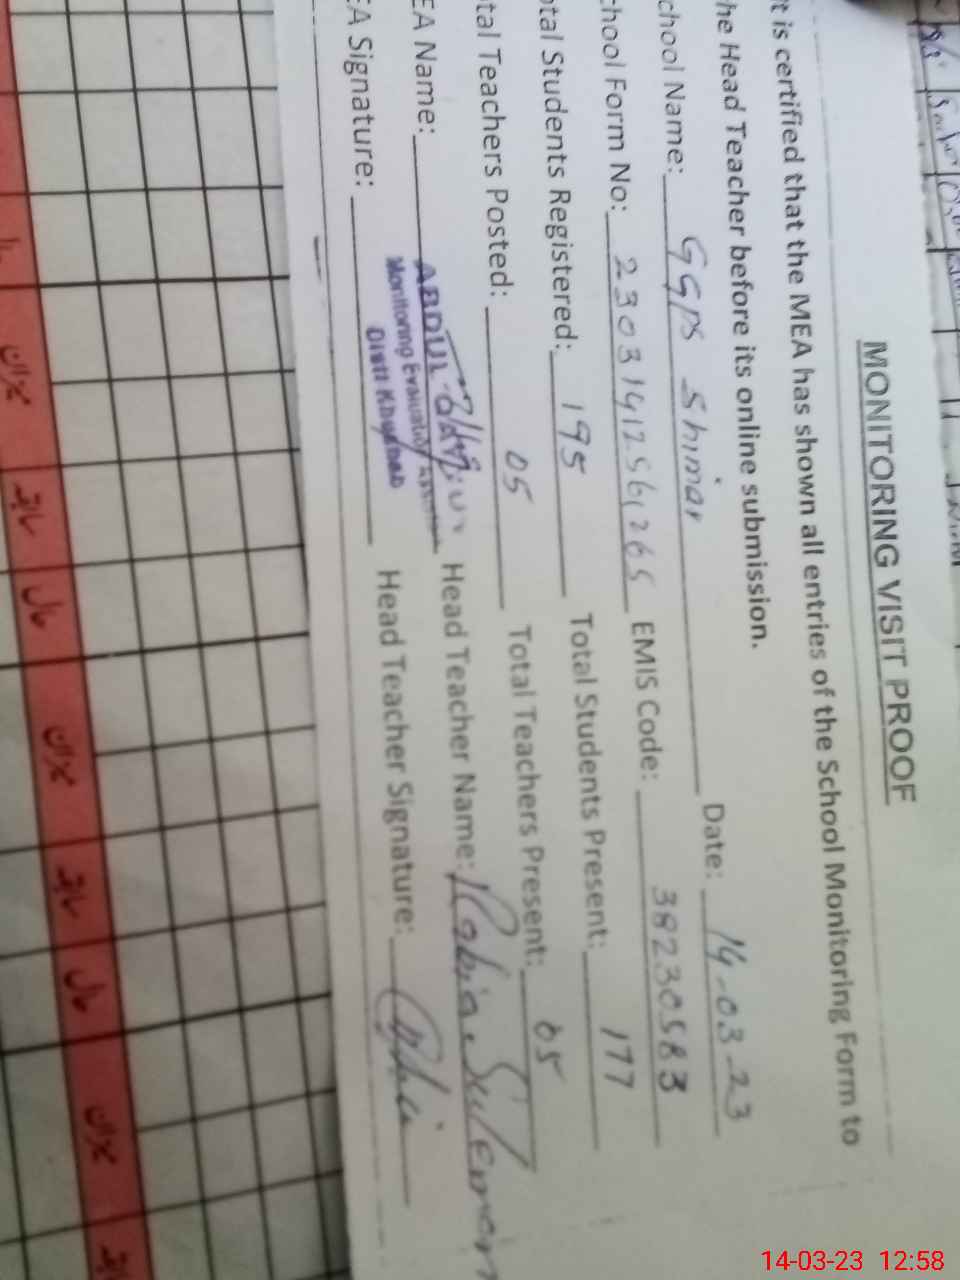 MONITORING VISIT PROOF
It is certified that the MEA has shown all entries of the School Monitoring Form to
he Head Teacher before its online submission.
chool Name: GGPS Shimar Date: 14-03-23
chool Form No: 23031412561265 EMIS Code: 38230583
otal Students Registered: 195 Total Students Present: 177
tal Teachers Posted: 05 Total Teachers Present: 05
EA Name: ABDUL Head Teacher Name: Rabia
Monitoring Evaluation
EA Signature: Head Teacher Signature:
میزان سابقہ حال میزان سابقہ حال میزان سابقہ
14-03-23 12:58